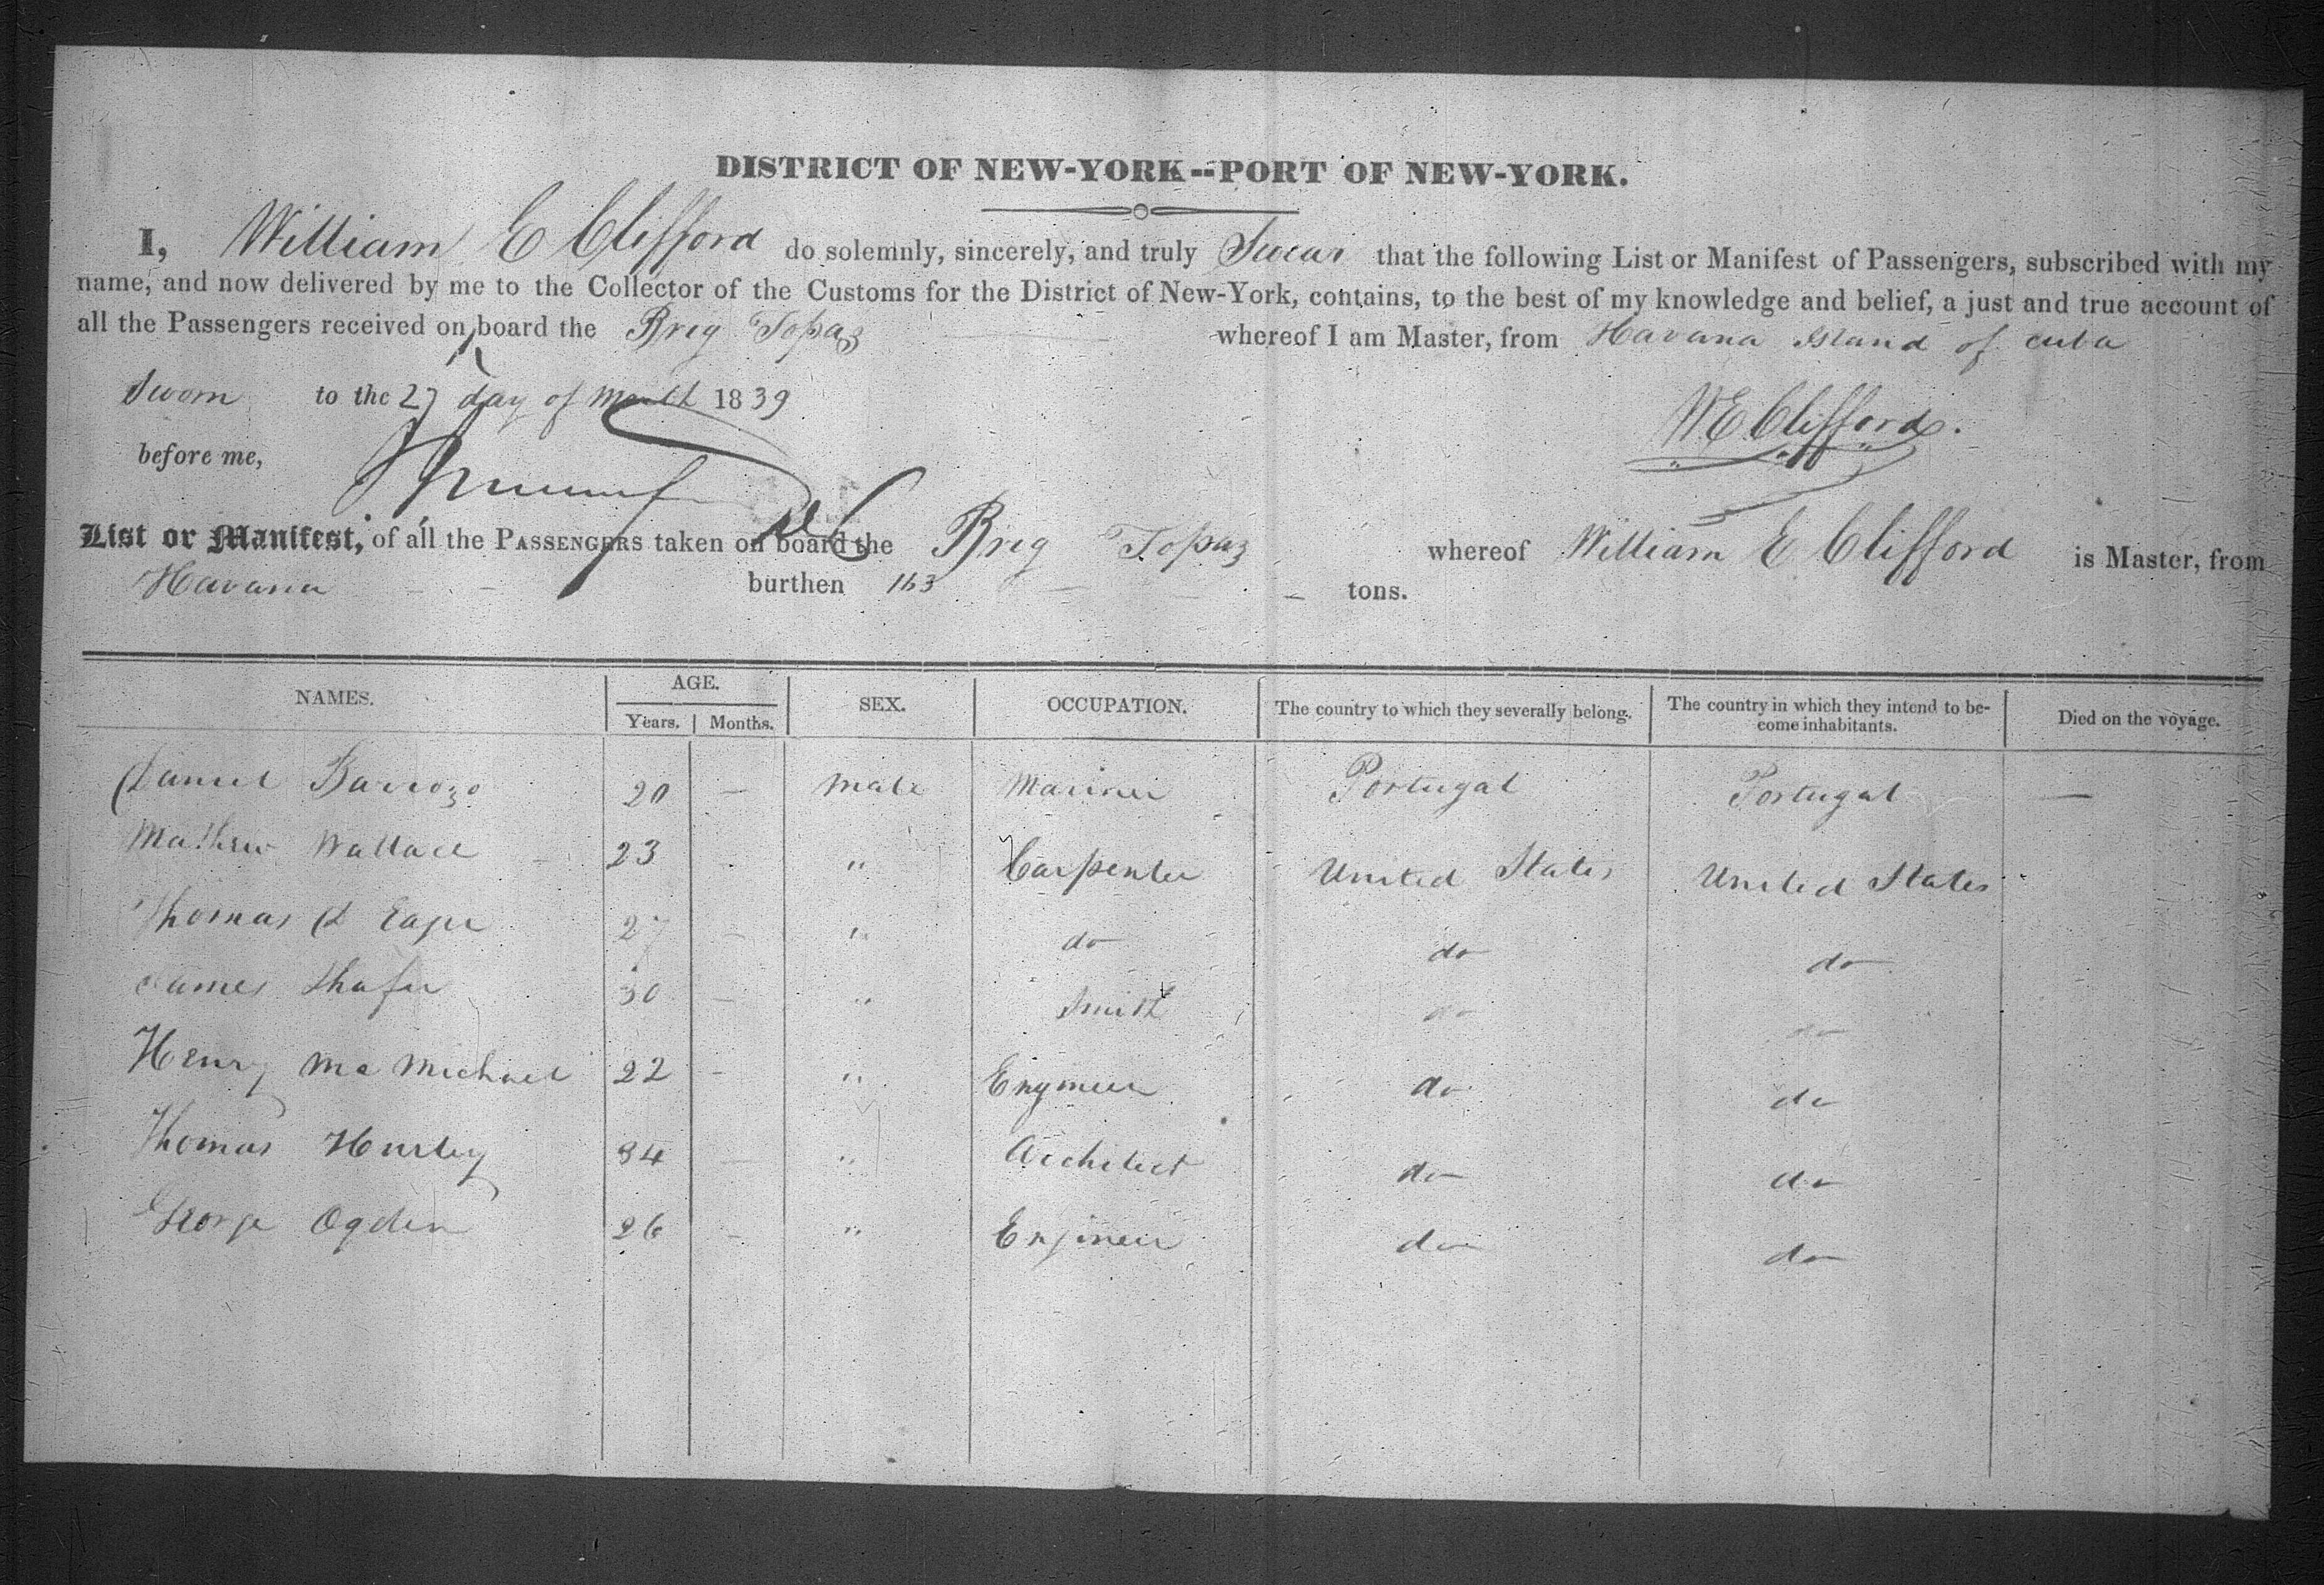 DISTRICT OF NEW-YORK--PORT OF NEW-YORK.
I, William E Clifford do solemnly, sincerely, and truly Swear that the following List or Manifest of Passengers, subscribed with my
name, and now delivered by me to the Collector of the Customs for the District of New-York, contains, to the best of my knowledge and belief, a just and true account of
all the Passengers received on board the Brig Topaz whereof I am Master, from Havana Island of Cuba
Sworn to the 27 day of March 1839
W E Clifford.
before me,
List or Manifest, of all the PASSENGERS taken on board the Brig Topaz whereof William E Clifford is Master, from
Havana burthen 163 tons.
NAMES. AGE. SEX. OCCUPATION. The country to which they severally belong. The country in which they intend to be-
come inhabitants. Died on the voyage.
Years. Months.
Daniel Barrozo 20 — male Mariner Portugal Portugal —
Mathew Wallace 23 " Carpenter United States United States
Thomas 27 — " do do do
James Shafer 30 — " Smith do do
Henry Mc Michael 22 - " Engineer do do
Thomas Hursley 34 — " Architect do do
George Ogden 26 - " Engineer do do